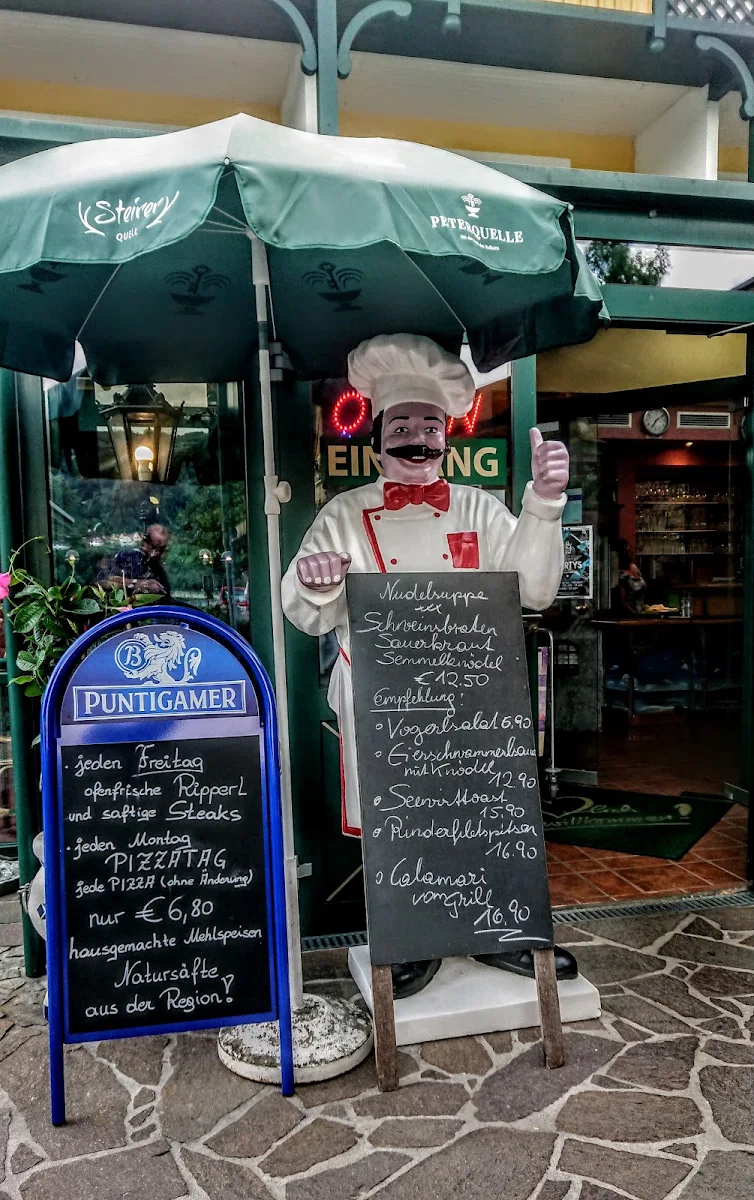 Steirer
QUELL
PETERQUELLE
EIN NG
Nudelsuppe
Schweinsbraten
Sauerkraut
Semmelknödel
€12.50
Empfehlung:
Vogerlsalat 6.90
mit Knödel
12.90
Seewirttoast
15.90
Rinderfiletspitzen
16.90
Calamari
vom Grill
16.90
B
PUNTIGAMER
• jeden Freitag
ofenfrische Ripperl
und saftige Steaks
• jeden Montag
PIZZATAG
jede PIZZA (ohne Änderung)
nur €6,80
hausgemachte Mehlspeisen
Natursäfte
aus der Region!